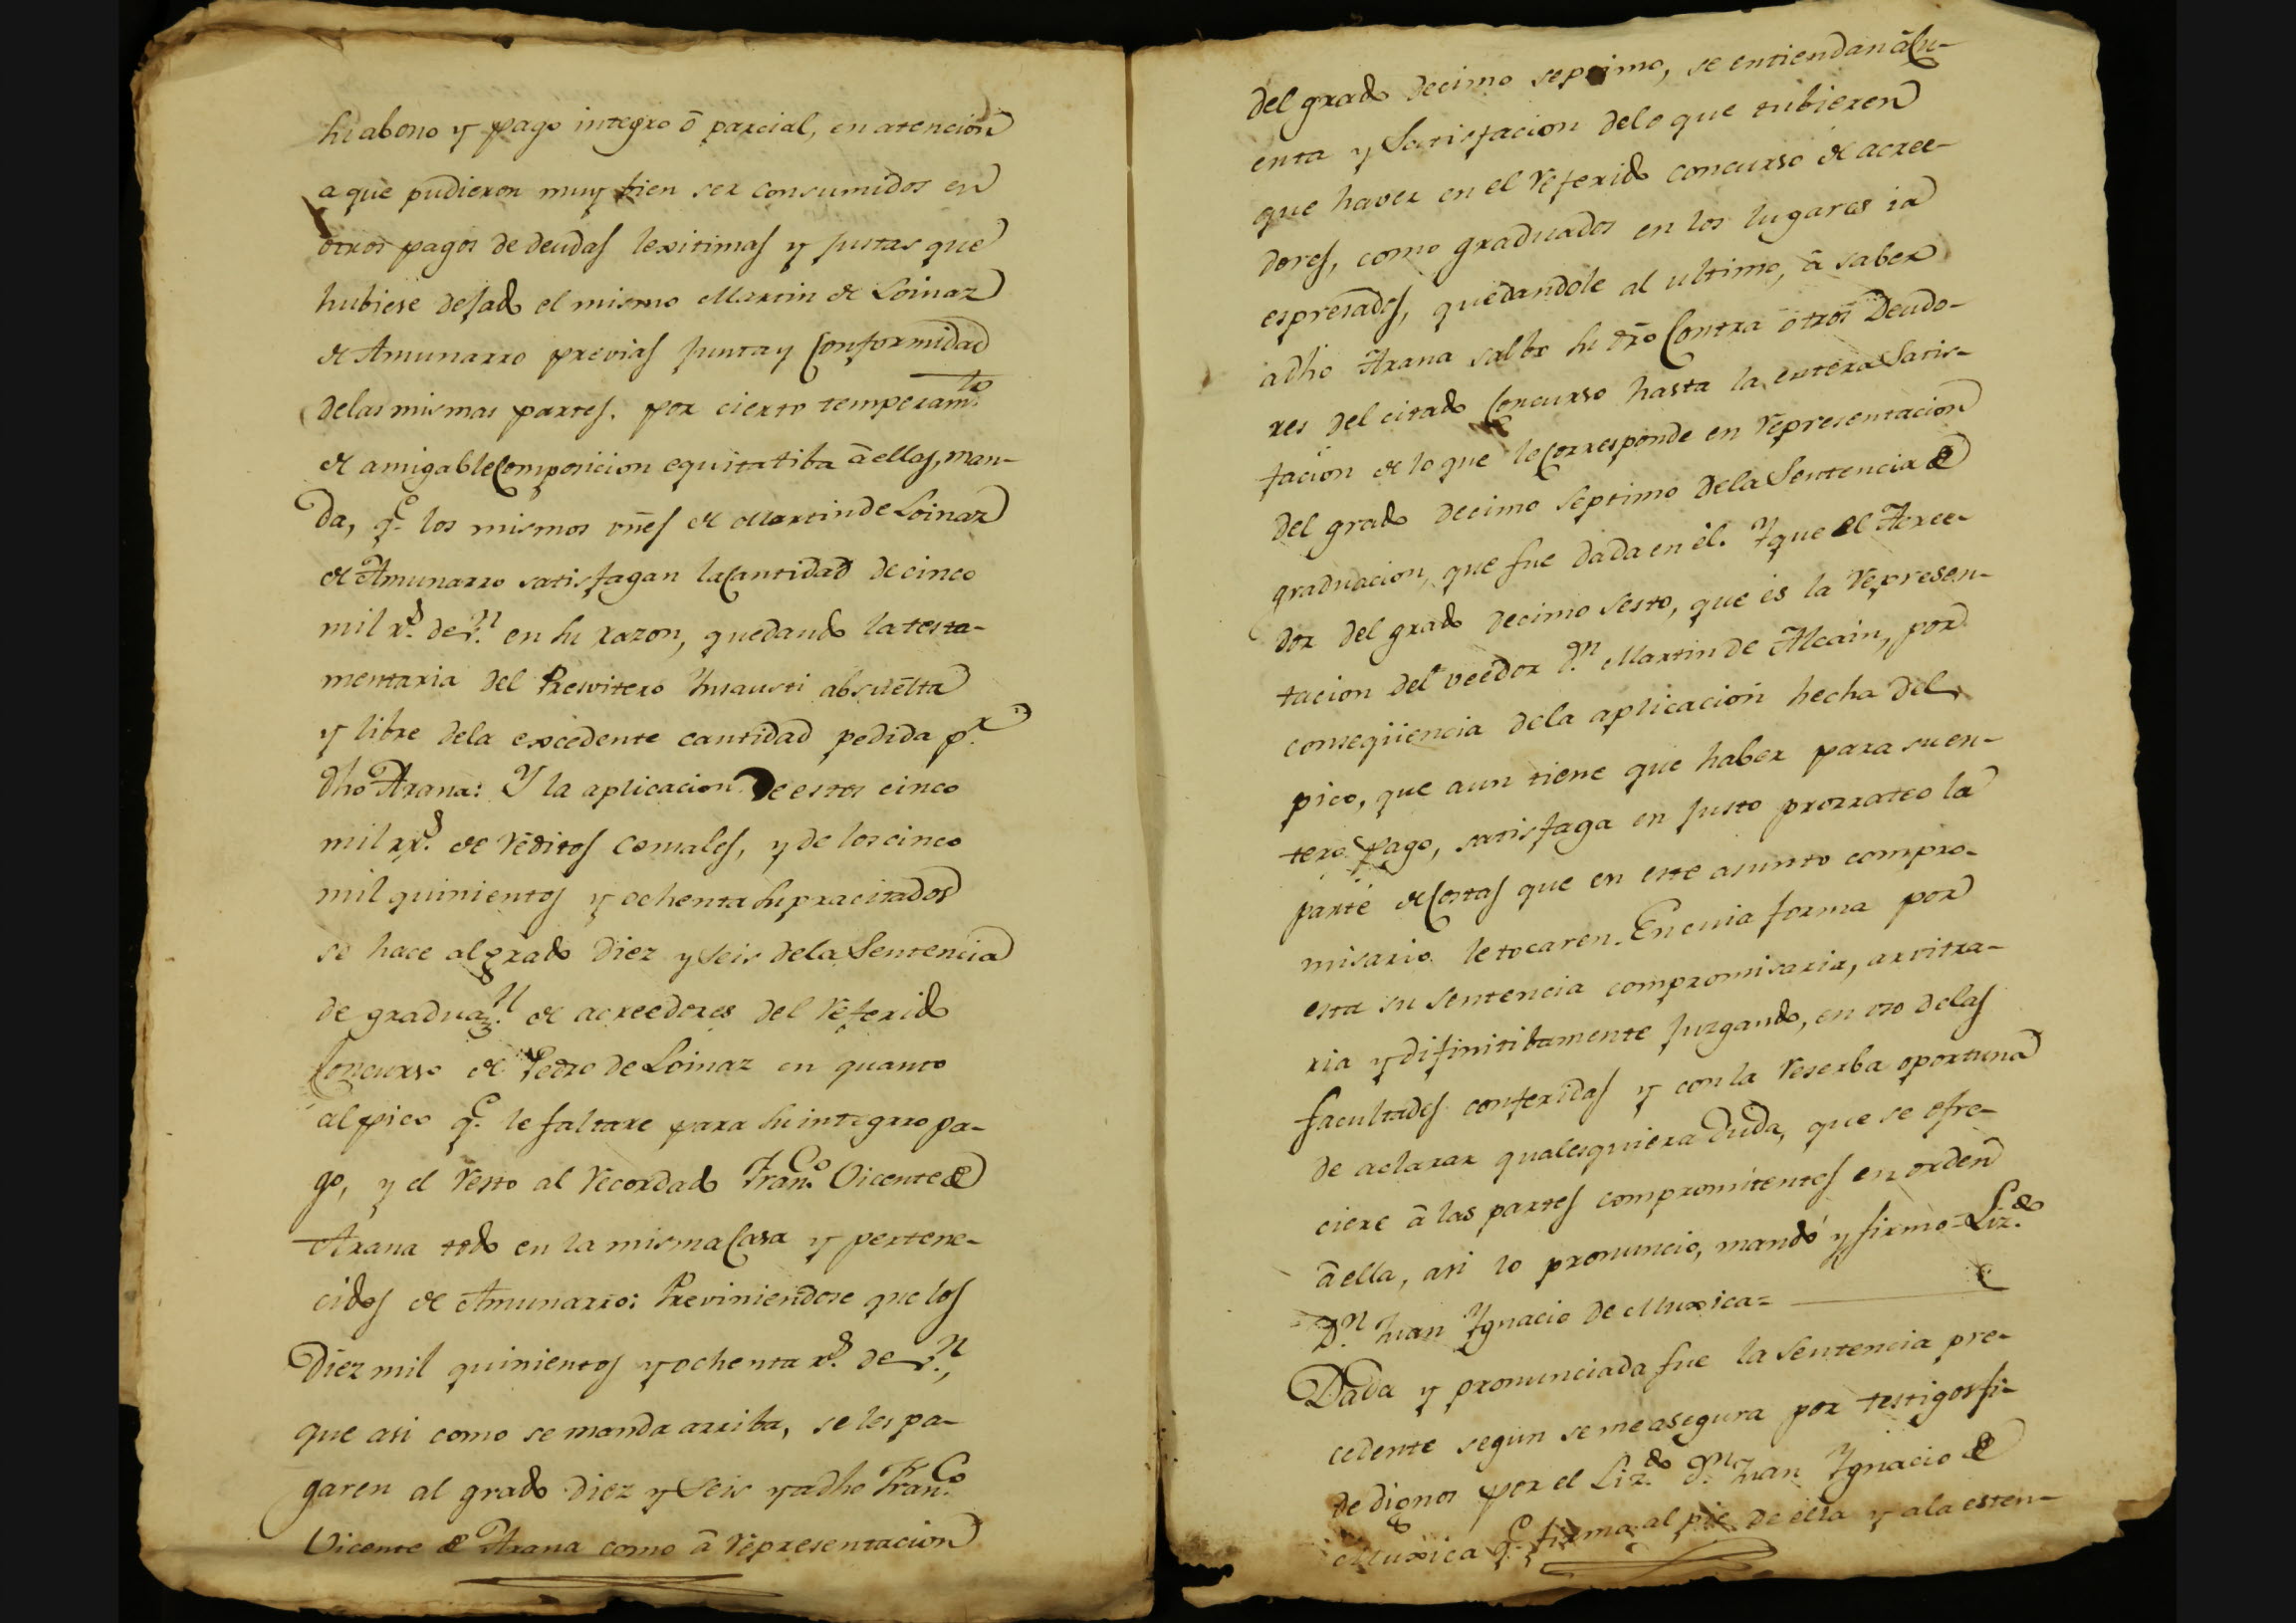 su abono y pago integro ô parcial, en atencion
a que pudieron muy bien ser consumidos en
otros pagos de deudas lexitimas y justas que
hubiese dejado el mismo Martin de Loinaz
de Amunarro previas junta y Conformidad
delas mismas partes. por cierto temperam.to
de amigable Composicion equitatiba â ellas, man-
da, q.e los mismos vñes de Martin de Loinaz
de Amunarro satisfagan la Cantidad de cinco
mil r.s de v.n en su razon, quedando la testa-
mentaria del Presvitero Ynsausti absuelta
y libre dela excedente cantidad pedida p.r
dho Arana: Y la aplicacion de estos cinco
mil rr.s de réditos censales, y de los cinco
mil quinientos y ochenta supracitados
se hace al grado diez y seis dela Sentencia
de graduaz.n de acreedores del referido
Concurso de Pedro de Loinaz en quanto
al pico q.e le faltare para su integro pa-
go, y el resto al recordado Fran.co Vicente de
Arana todo en la misma Casa y pertene-
cidos de Amunarro: Previniendose que los
Diez mil quinientos y ochenta r.s de v.n,
que asi como se manda arriba, se les pa-
garen al grado diez y seis y a dho Fran.co
Vicente de Arana como â representacion
del grado decimo septimo, se entiendan â cu-
enta y Satisfacion delo que tubieren
que haver en el referido concurso de acree-
dores, como graduados en los lugares ia
espresados, quedandole al ultimo, â saber
a dho Arana salbo su dro Contra otros Deudo-
res del citado Concurso hasta la entera Satis-
facion de lo que le Corresponde en representacion
del grado decimo septimo dela Sentencia de
graduacion, que fue dada en él. Y que el Acree-
dor del grado decimo sesto, que es la represen-
tacion del veedor d.n Martin de Alcain, por
conseqüencia dela aplicacion hecha del
pico, que aun tiene que haber para su en-
tero pago, satisfaga en justo prorrateo la
parte de Costas que en este asunto compro-
misario le tocaren. En cuia forma por
esta su sentencia compromisaria, arvitra-
ria y difinitibamente juzgando, en uso delas
facultades conferidas y con la reserba oportuna
de aclarar qualesquiera duda, que se ofre-
ciere â las partes compromitentes en orden
â ella, asi lo pronuncio, mandó y firmo = Liz.do
D.n Juan Ygnacio de Muxica=
Dada y pronunciada fue la Sentencia pre-
cedente segun se me asegura por testigos fi-
dedignos por el Liz.do d.n Juan Ygnacio de
Muxica q.e firma al pie de ella y a la esten-